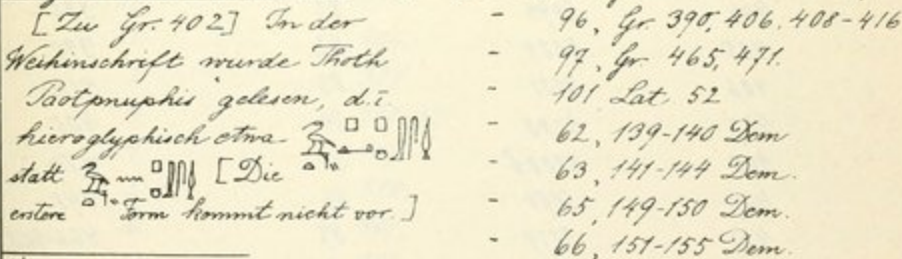 [Zu Gr. 402] In der
Weihinschrift wurde Thoth
Paotpnuphis gelesen, d.i.
hieroglyphisch etwa
statt [Die
erstere Form kommt nicht vor.]
- 96, Gr. 390, 406. 408-416
- 97, Gr. 465, 471.
- 101 Lat. 52
- 62, 139-140 Dem
- 63, 141-144 Dem.
- 65, 149-150 Dem.
- 66, 151-155 Dem.